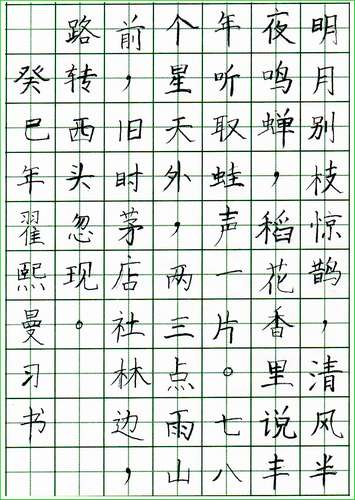 明月别枝惊鹊，清风半
夜鸣蝉，稻花香里说丰
年听取蛙声一片。七八
个星天外，两三点雨山
前，旧时茅店社林边，
路转西头忽现。
癸巳年翟熙曼习书